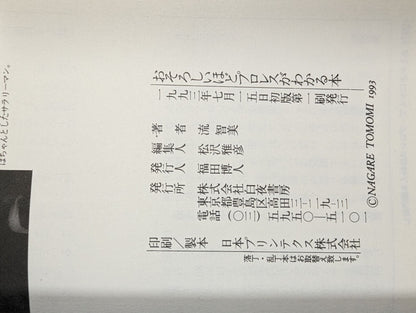 はちゃんとしたサラリーマン。
おそろしいほどプロレスがわかる本
一九九三年七月一五日初版第一刷発行
著者 流智美
編集人 松沢雅彦
発行人 福田博人
発行所 株式会社白夜書房
東京都豊島区高田三-一九-二
電話（〇三）五九五〇-五一〇一
©NAGARE TOMOMI 1993
印刷／製本 日本プリンテクス株式会社
落丁・乱丁本はお取替え致します。